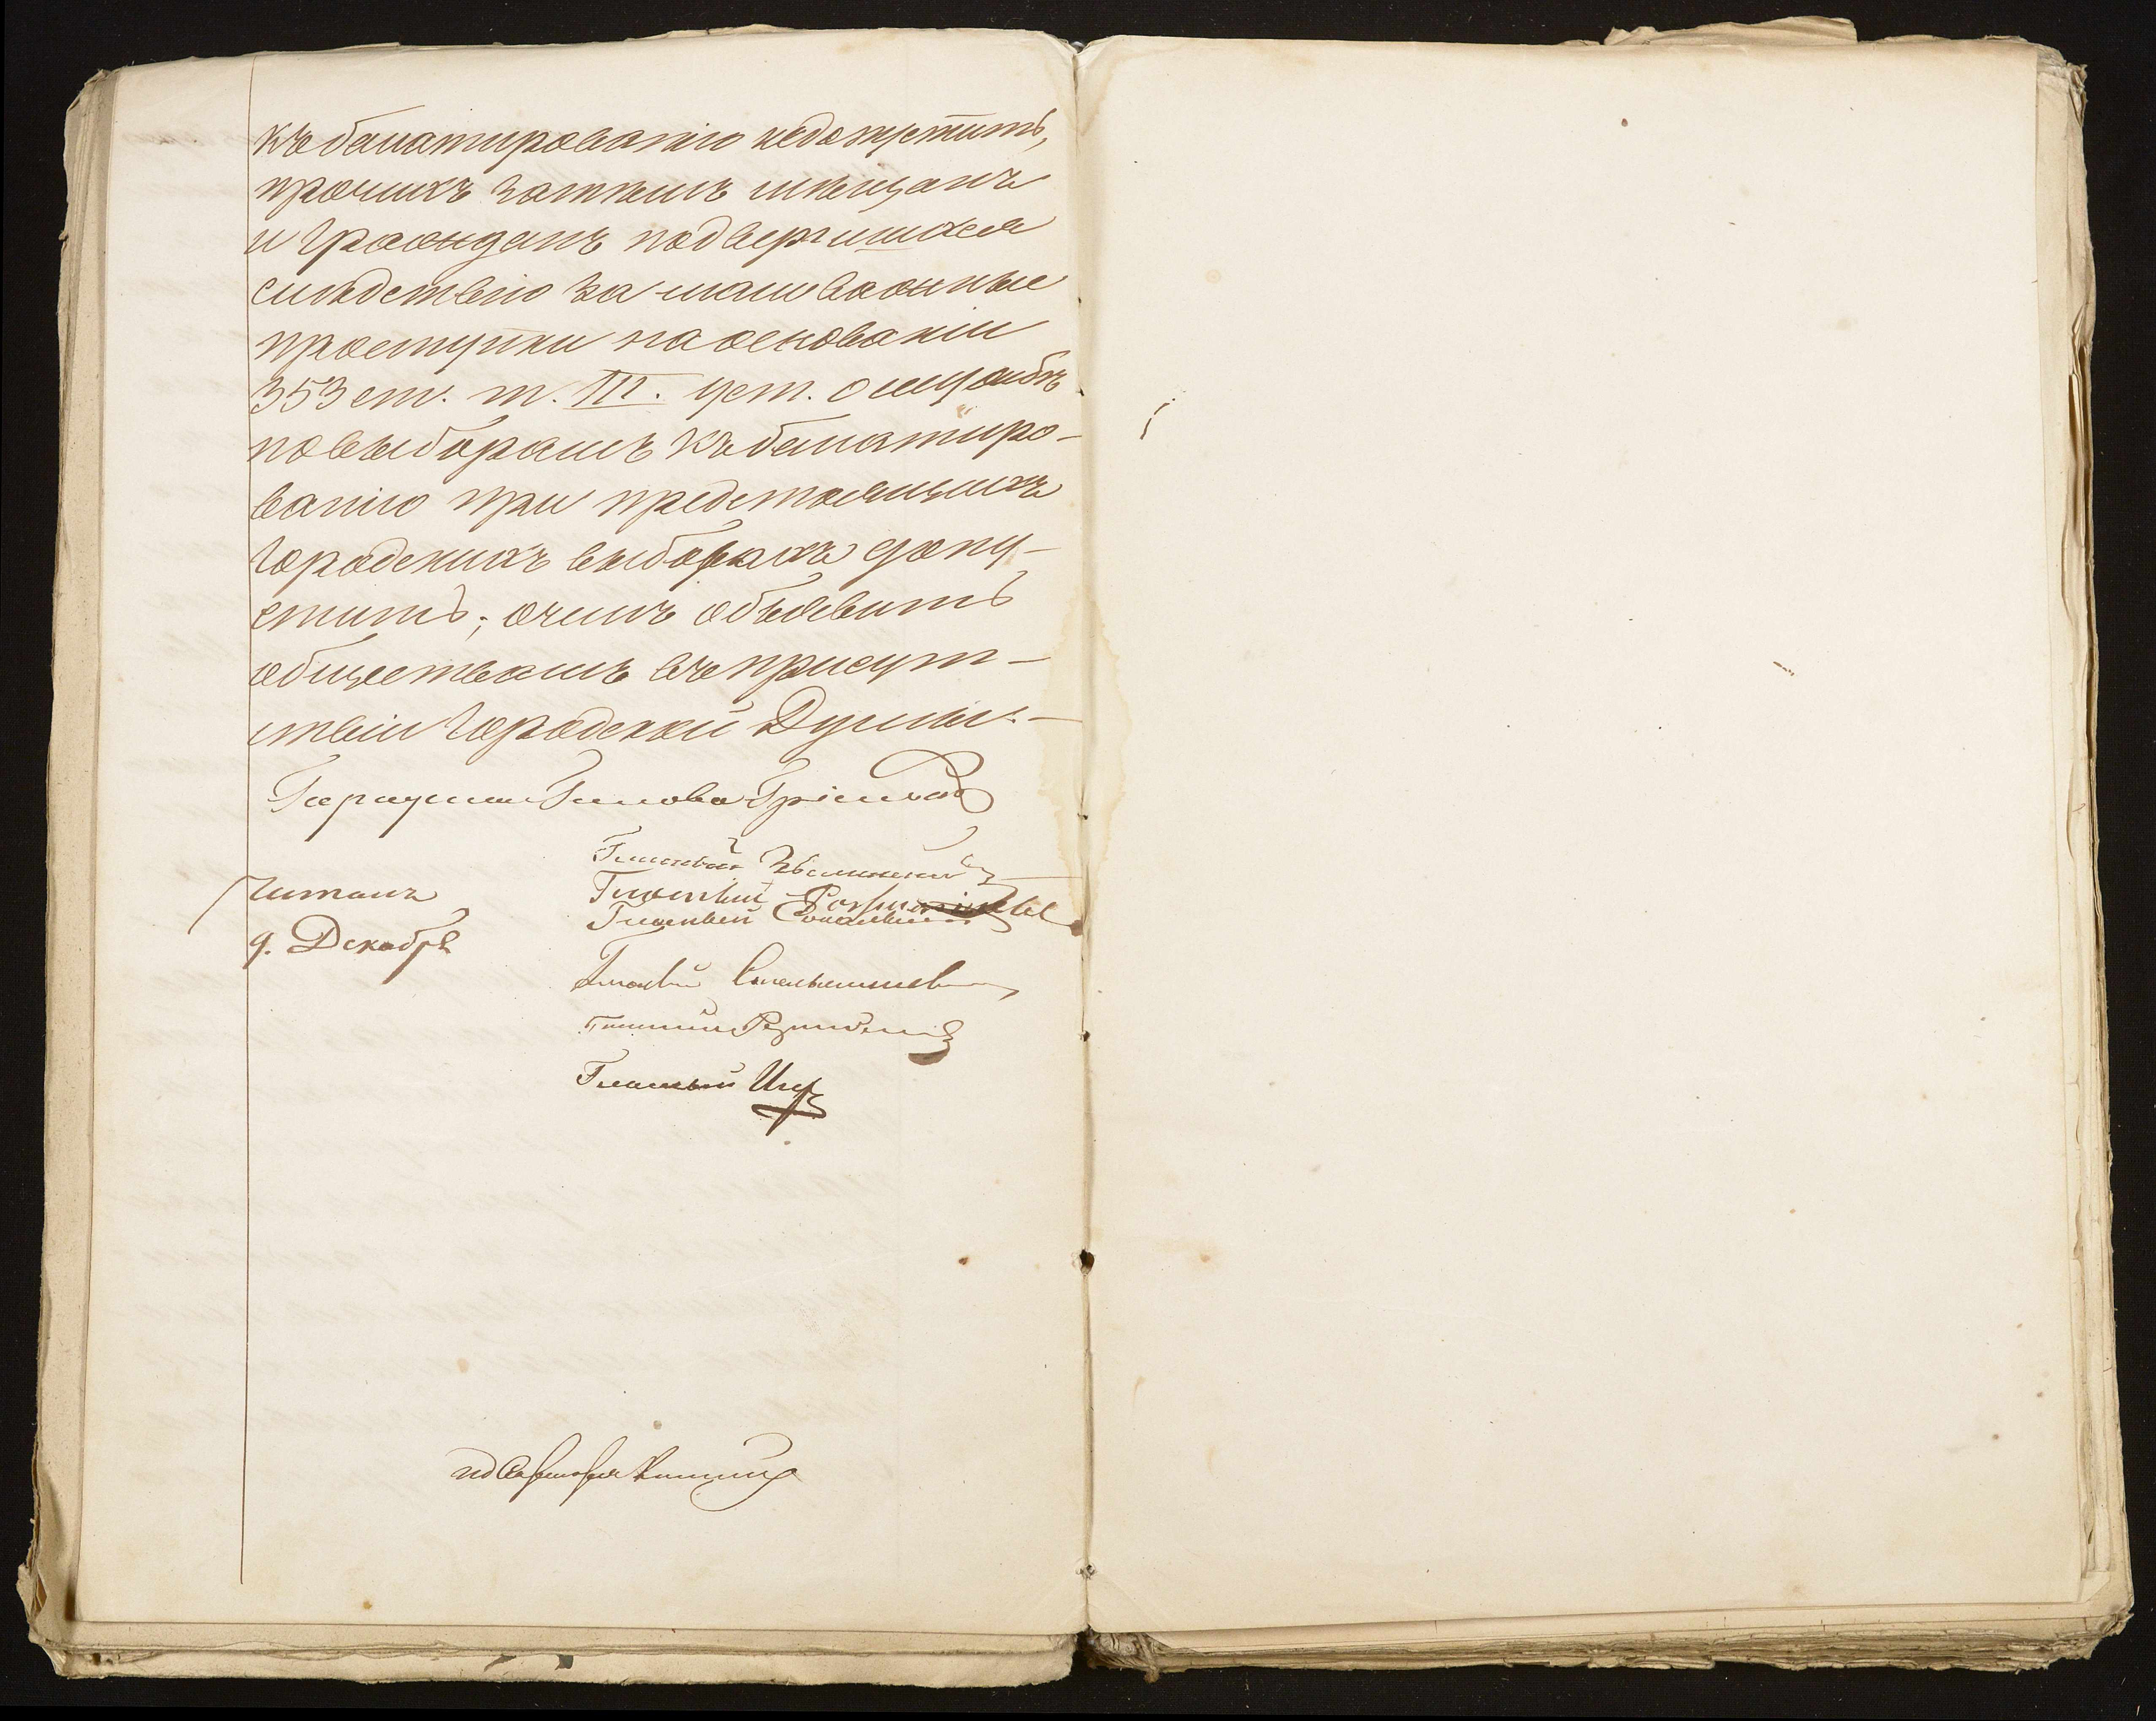 къ балатированію недопустить,
прочихъ затемъ мѣщанъ
и Гражданъ подвергшихся
слѣдствію за маловажные
проступки на основаніи
353 ст. т. III. уст. о службѣ
по выборамъ къ балатиро-
ванію при предстоящихъ
Городскихъ выборахъ допу-
стить; о чемъ объявить
обществамъ въ присут-
ствіи Городской Думы. –
Голова
Гласный
Читалъ
Гласный
Гласный
9. Декабря
Гласный
Гласный
Гласный
Секретаря